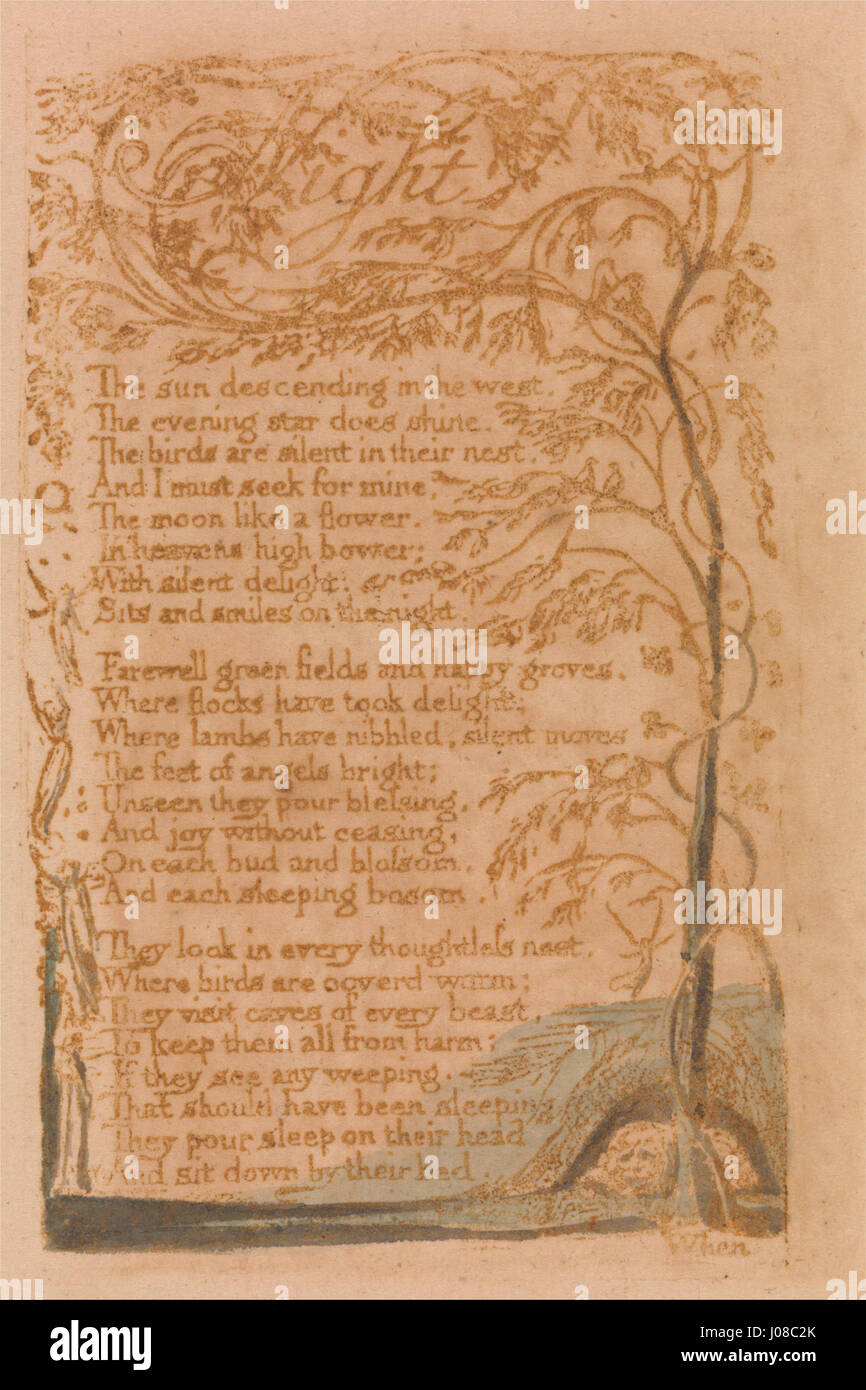 Night
The sun descending in the west.
The evening star does shine.
The birds are silent in their nest,
And I must seek for mine,
The moon like a flower,
In heavens high bower;
With silent delight,
Sits and smiles on the night.
Farewell green fields and happy groves,
Where flocks have took delight;
Where lambs have nibbled, silent moves
The feet of angels bright;
Unseen they pour blefsing,
And joy without ceasing,
On each bud and blofsom,
And each sleeping bosom.
They look in every thoughtlefs nest,
Where birds are coverd warm;
They visit caves of every beast,
To keep them all from harm;
If they see any weeping,
That should have been sleeping
They pour sleep on their head
And sit down by their bed.
When
alamy
alamy stock photo
J08C2K
www.alamy.com